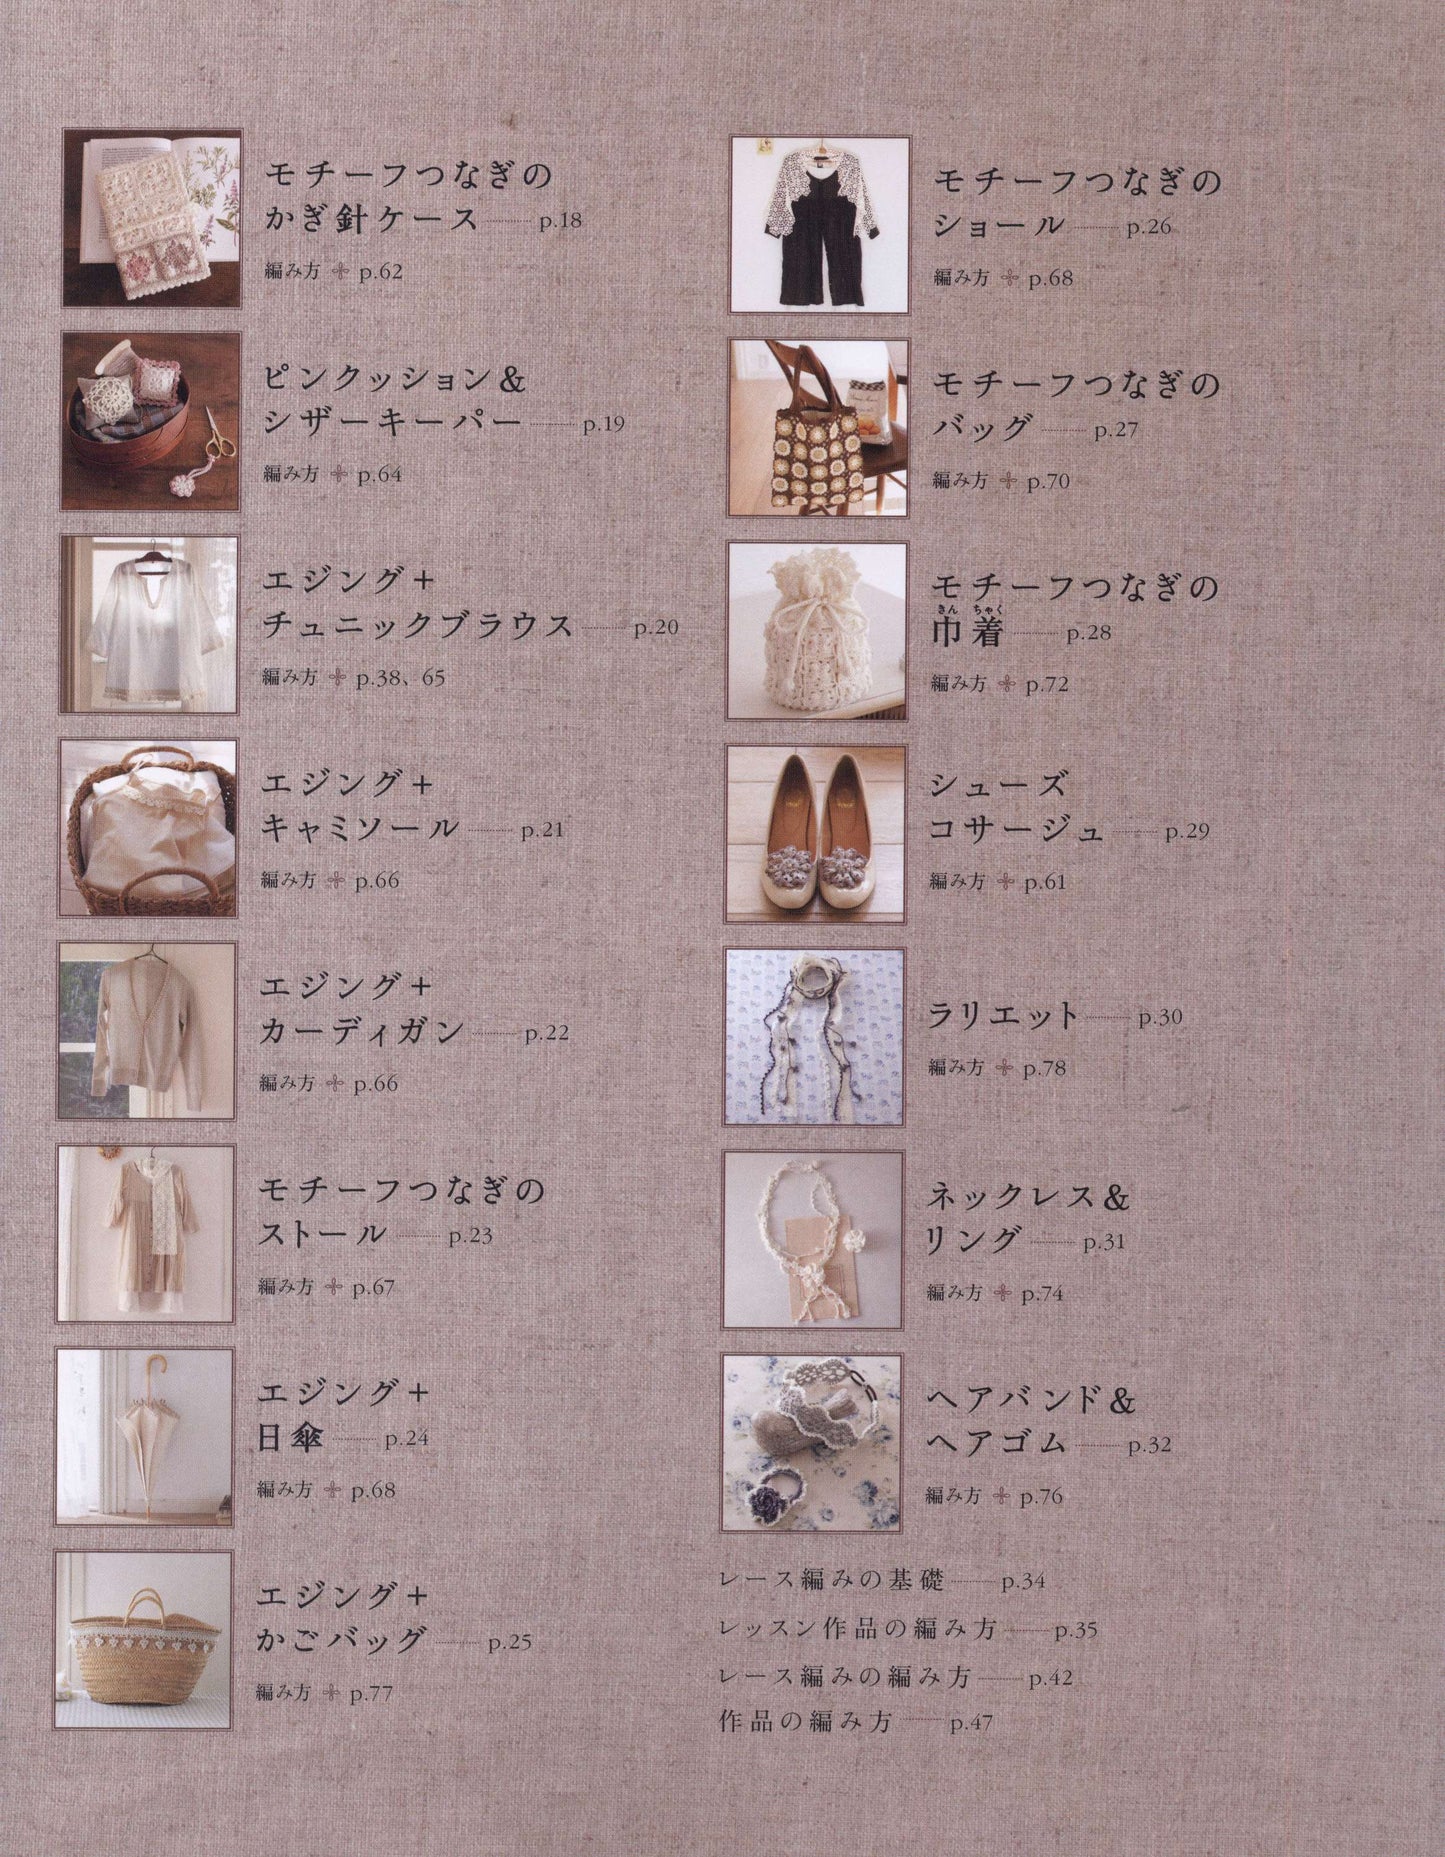 モチーフつなぎの
かぎ針ケース p.18
編み方 p.62
ピンクッション&
シザーキーパー p.19
編み方 p.64
エジング+
チュニックブラウス p.20
編み方 p.38、65
エジング+
キャミソール p.21
編み方 p.66
エジング+
カーディガン p.22
編み方 p.66
モチーフつなぎの
ストール p.23
編み方 p.67
エジング+
日傘 p.24
編み方 p.68
エジング+
かごバッグ p.25
編み方 p.77
モチーフつなぎの
ショール p.26
編み方 p.68
モチーフつなぎの
バッグ p.27
編み方 p.70
モチーフつなぎの
きん ちゃく
巾着 p.28
編み方 p.72
シューズ
コサージュ p.29
編み方 p.61
ラリエット p.30
編み方 p.78
ネックレス&
リング p.31
編み方 p.74
ヘアバンド&
ヘアゴム p.32
編み方 p.76
レース編みの基礎 p.34
レッスン作品の編み方 p.35
レース編みの編み方 p.42
作品の編み方 p.47